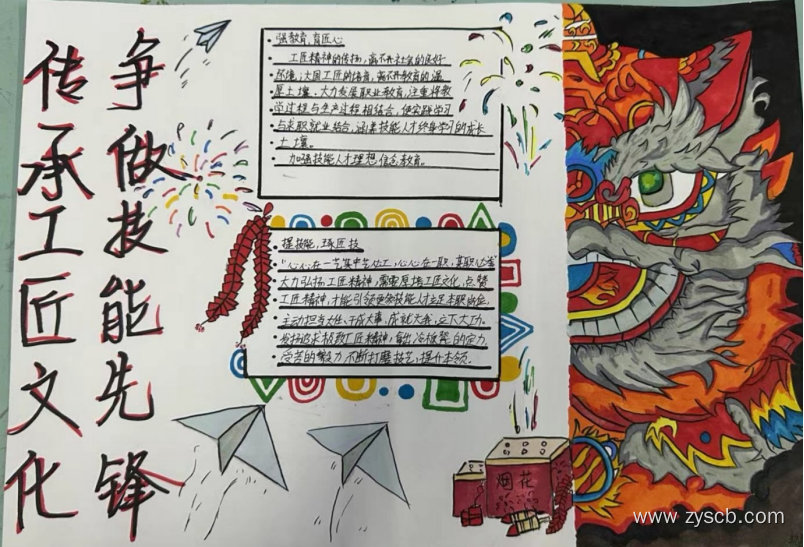 传承工匠文化
争做技能先锋
强教育，育匠心
工匠精神的传扬，离不开社会的良好
环境，大国工匠的培育，离不开教育的温
厚土壤。大力发展职业教育，注重将教
学过程与生产过程相结合，使实践学习
与求职就业结合，涵养技能人才终身学习的成长
土壤。
加强技能人才理想信念教育。
提技能，琢匠技
"心心在一艺其艺必工，心心在一职，其职必举"
大力弘扬工匠精神，需要厚培工匠文化，点赞
工匠精神，才能引领更多技能人才立足本职岗位，
主动担当大任、干成大事、成就大我，立下大功。
发扬追求极致工匠精神，每出冷板凳的定力
受苦的毅力，不断打磨技艺，提升本领.
烟花
www.zyscb.com